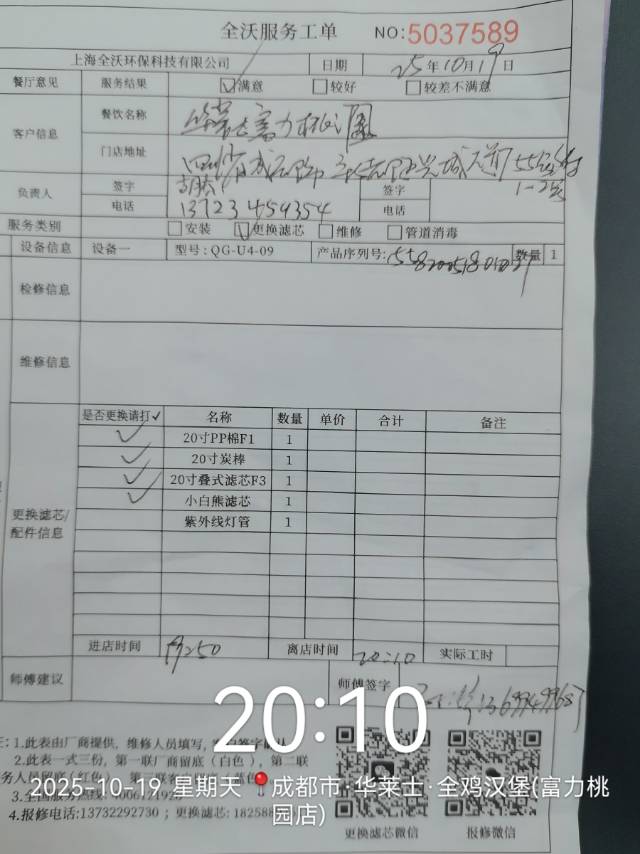 全沃服务工单 NO:5037589
上海全沃环保科技有限公司 日期 25年10月19日
餐厅意见 服务结果 ☑满意 □较好 □较差不满意
客户信息 餐饮名称 华莱士富力桃园
门店地址
负责人 签字 签字
电话 13723454354 电话
服务类别 □安装 ☑更换滤芯 □维修 □管道消毒
设备信息 设备一 型号:QG-U4-09 产品序列号: 数量 1
检修信息
维修信息
更换滤芯/配件信息
是否更换请打✓ 名称 数量 单价 合计 备注
✓ 20寸PP棉F1 1
✓ 20寸炭棒 1
✓ 20寸叠式滤芯F3 1
✓ 小白熊滤芯 1
紫外线灯管 1
进店时间 离店时间 20:10 实际工时
师傅建议 师傅签字
20:10
1.此表由厂商提供,维修人员填写,
2.此表一式三份,第一联厂商留底(白色),第二联
2025-10-19 星期天 成都市·华莱士·全鸡汉堡(富力桃
园店)
3.全国服务热线:
4.报修电话:13732292730;更换滤芯:
更换滤芯微信 报修微信